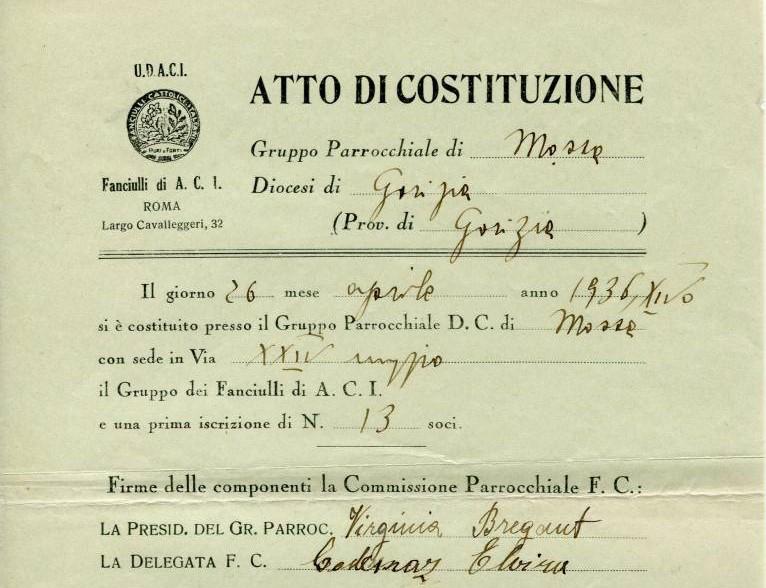 U.D.A.C.I.
Fanciulli di A. C. I.
ROMA
Largo Cavalleggeri, 32
ATTO DI COSTITUZIONE
Gruppo Parrocchiale di Mossa
Diocesi di Gorizia
(Prov. di Gorizia )
Il giorno 26 mese aprile anno 1936, XIVo
si è costituito presso il Gruppo Parrocchiale D. C. di Mossa
con sede in Via XXIV maggio
il Gruppo dei Fanciulli di A. C. I.
e una prima iscrizione di N. 13 soci.
Firme delle componenti la Commissione Parrocchiale F. C.:
LA PRESID. DEL GR. PARROC. Virginia Bregant
LA DELEGATA F. C. Elvira